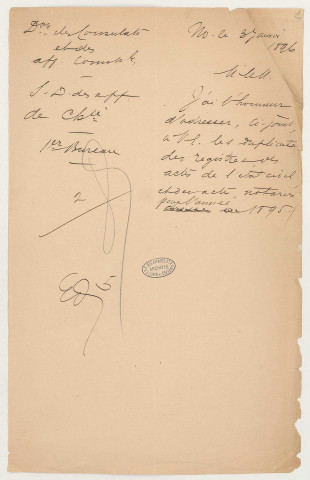 Don des Consulats
et des
aff. Consul.
S-D des aff
de Ch^lie
1er Bureau
2
No. le 3 janvier
1896
M. le M.
J'ai l'honneur
d'adresser, ci-joint,
à V.E. les duplicata
des registres des
actes de l'état civil
et des actes notariés
pour l'année
1895./.